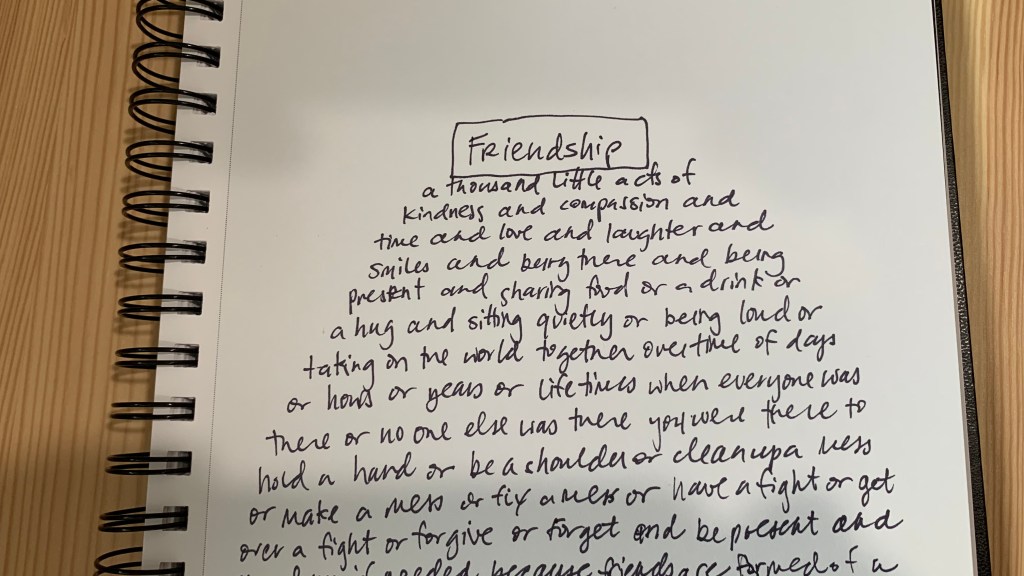 Friendship
a thousand little acts of
kindness and compassion and
time and love and laughter and
smiles and being there and being
present and sharing food or a drink or
a hug and sitting quietly or being loud or
taking on the world together over time of days
or hours or years or lifetimes when everyone was
there or no one else was there you were there to
hold a hand or be a shoulder or clean up a mess
or make a mess or fix a mess or have a fight or get
over a fight or forgive or forget and be present and
if needed because friends are formed of a